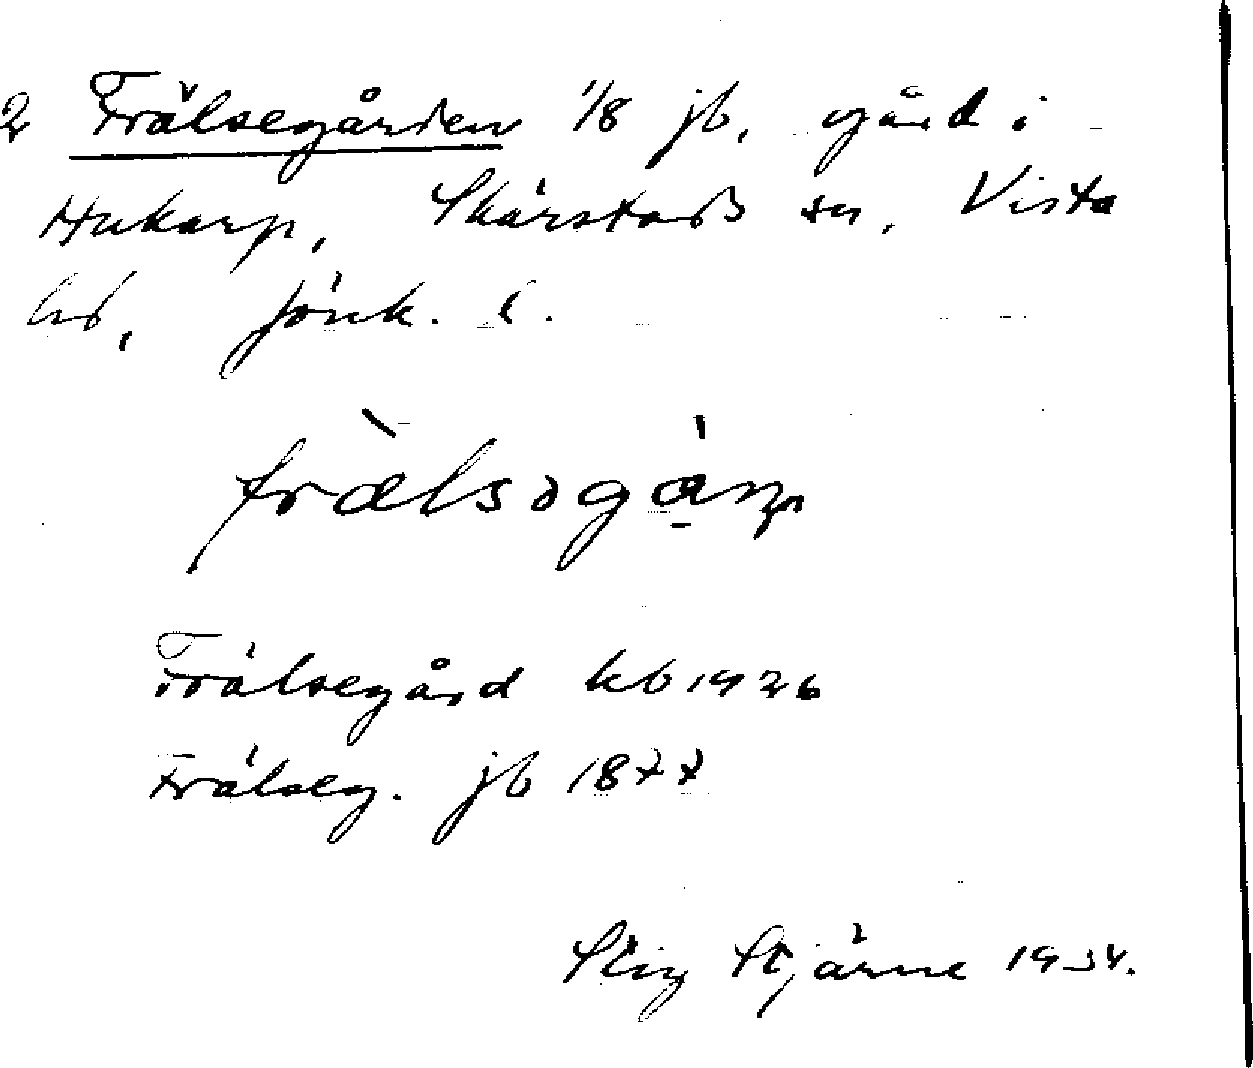 2 Frälsegården 1/8 jb, gård i
Hukarp, Skärstads sn, Vista
hd, Jönk. l.
Frälsegård kb 1926
Frälseg. jb 1877
Stig Stjärne 1934.